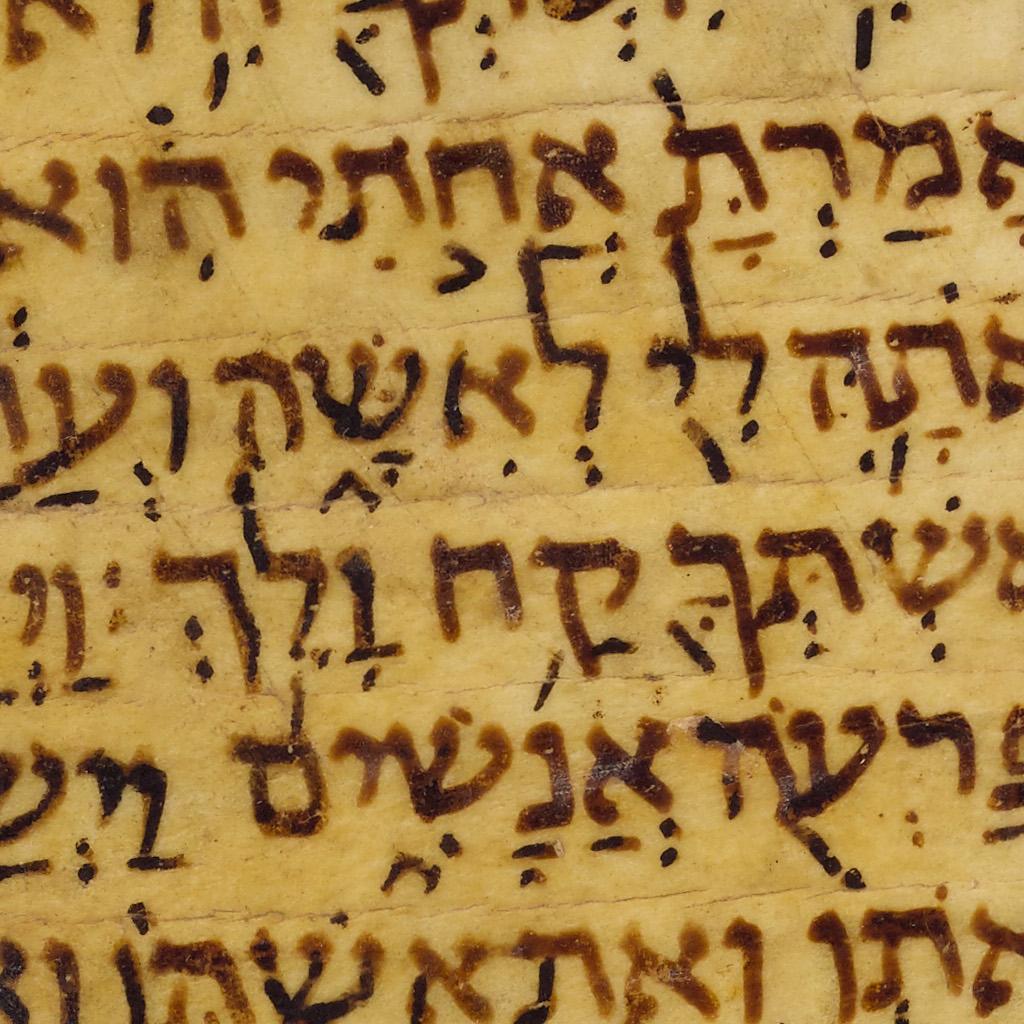 אָמַרְתָּ אֲחֹתִי הִוא
אֹתָהּ לִי לְאִשָּׁה וְעַ
אִשְׁתְּךָ קַח וָלֵךְ וַי
פַּרְעֹה אֲנָשִׁים וַיְשַׁ
אֹתוֹ וְאֶת אִשְׁתּוֹ